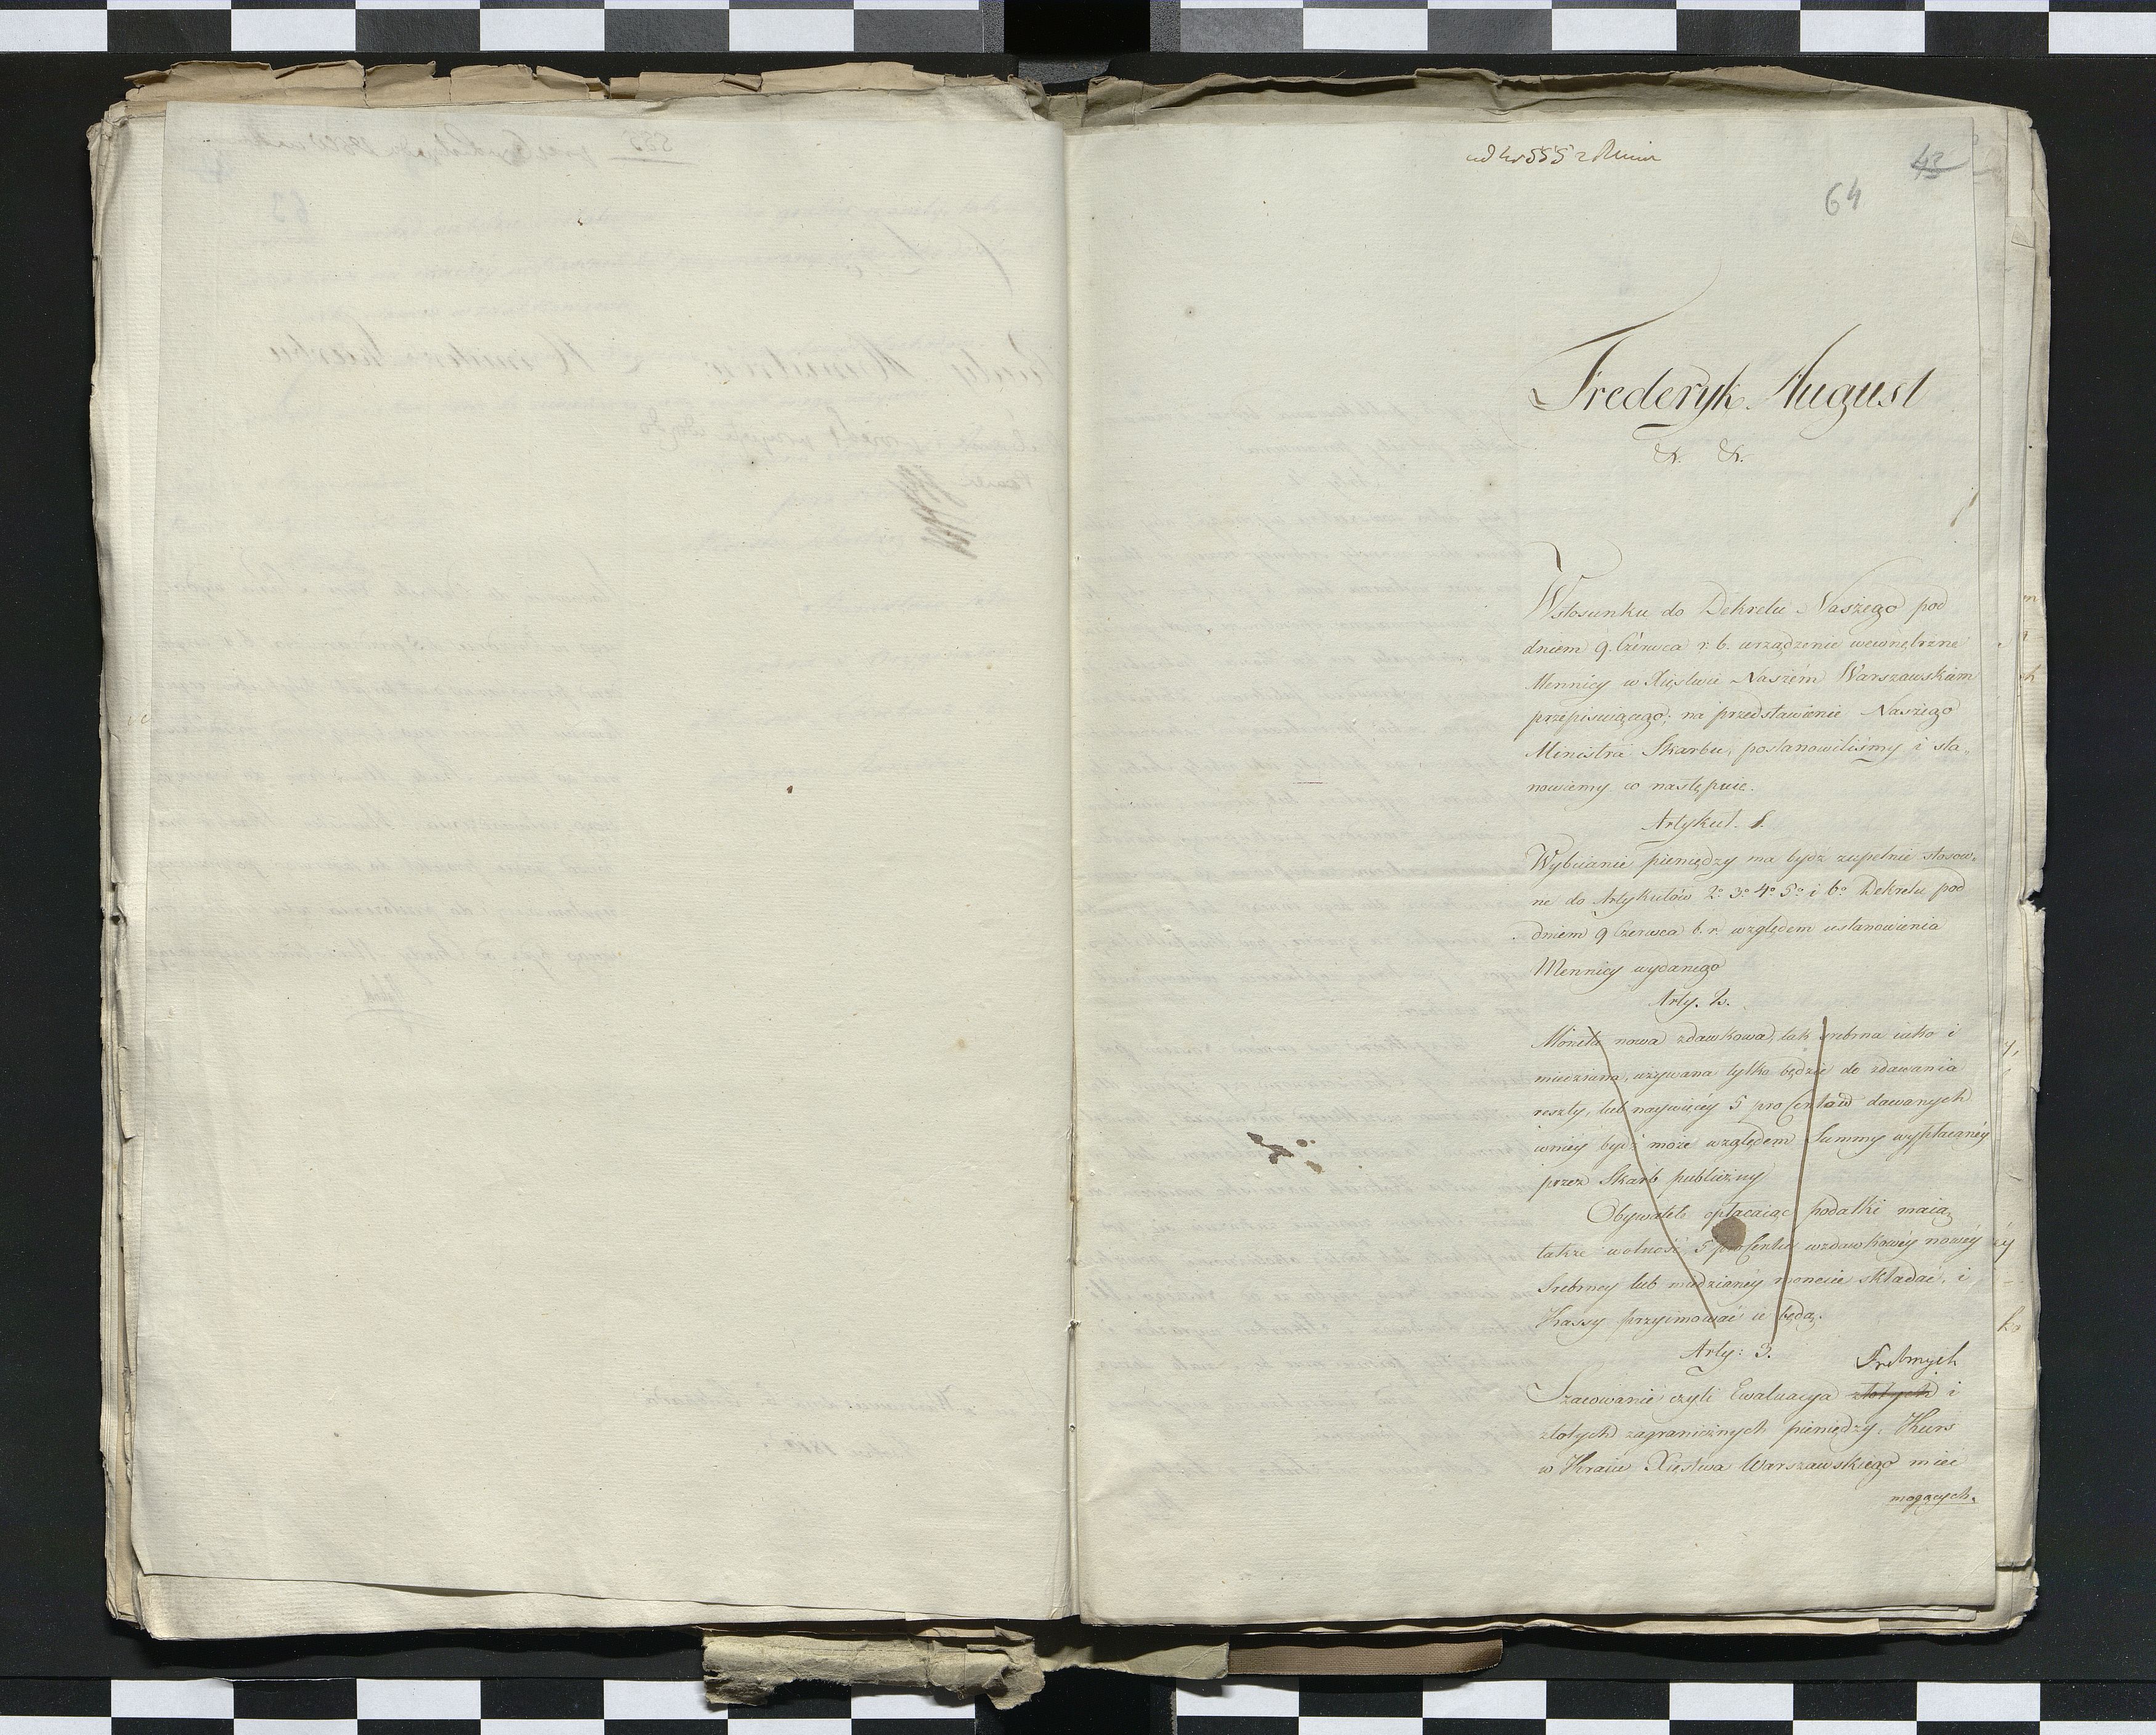 ad Nr 555
43
64
Frederyk August
&. &.
W stosunku do Dekretu Naszego pod
dniem 9. Czérwca r. b. urządzenie wewnętrzne
Mennicy w Xięstwie Naszém Warszawskiem
przepisuiącego; na przedstawienie Naszego
Ministra Skarbu, postanowiliśmy i sta„
nowiemy co następuie.
Artykuł. 1.
Wybiianie pieniędzy ma bydź zupełnie stosow„
ne do Artykułów 2º 3º 4º 5º i 6º Dekretu pod
dniem 9 Czerwca b. r. względem ustanowienia
Mennicy wydanego
Arty. 2.
Moneta nowa zdawkowa, tak srebrna iako i
miedziana, używana tylko będzie do zdawania
reszty, lub naywięcéy 5 procentów dawanych
w niéy bydź może względem Summy wypłacanéy
przez Skarb publiczny
Obywatele opłacaiąc podatki maią
także wolność 5 procentu w zdawkowéy nowéy
Srebrney lub miedzianéy monecie składać, i
Kassy przyimować ie będą.
Arty: 3.
Srebrnych
Szacowanie czyli Ewaluacya złotych i
złotych zagranicznych pieniędzy, Kurs
w Kraiu Xięstwa Warszawskiego mieć
mogących.